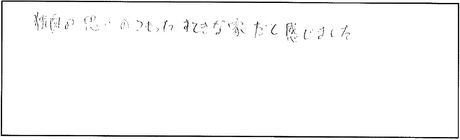 独自の思いのつまったすてきな家だと感じました